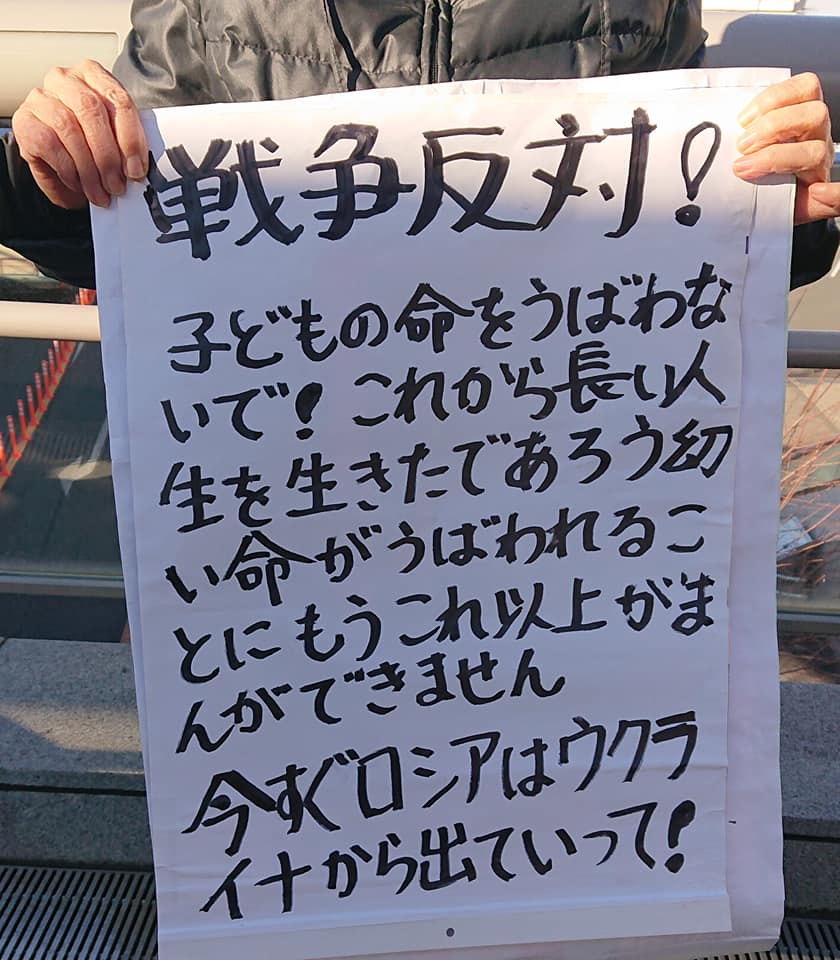 戦争反対!
子どもの命をうばわな
いで!これから長い人
生を生きたであろう幼
い命がうばわれるこ
とにもうこれ以上がま
んができません
今すぐロシアはウクラ
イナから出ていって!